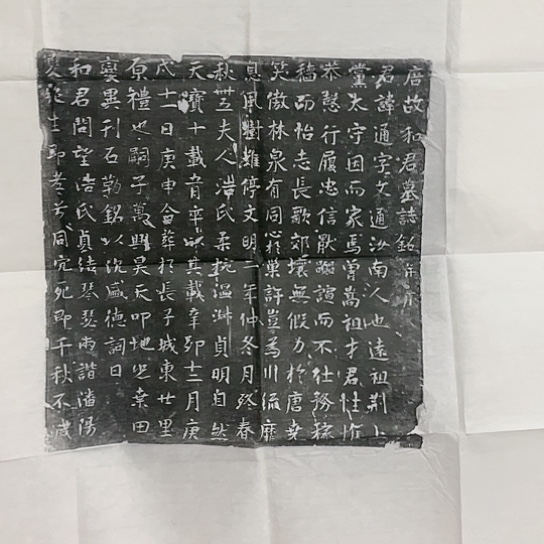 唐故和君墓誌銘并序
君諱通字文通汝南人也遠祖荆上
黨太守因而家焉曾嵩祖才君性忻
恭慤行履忠信厭諠而不仕務稼
穡而怡志長歌郊壤無假力於唐堯
笑傲林泉有同心於巢許豈為川流靡
息風樹難停文明一年仲冬月終春
秋夫人浩氏柔婉温淋貞明自然
天寶十載平以其載辛卯十二月庚
戌十一日庚申合葬於長子城東廿里
原禮也嗣子萬興昊天叩地業田
變異刊石勒銘以沈盛德詞曰
和君問望浩氏貞結琴瑟雨諧潘陽
同穴死即千秋不滅